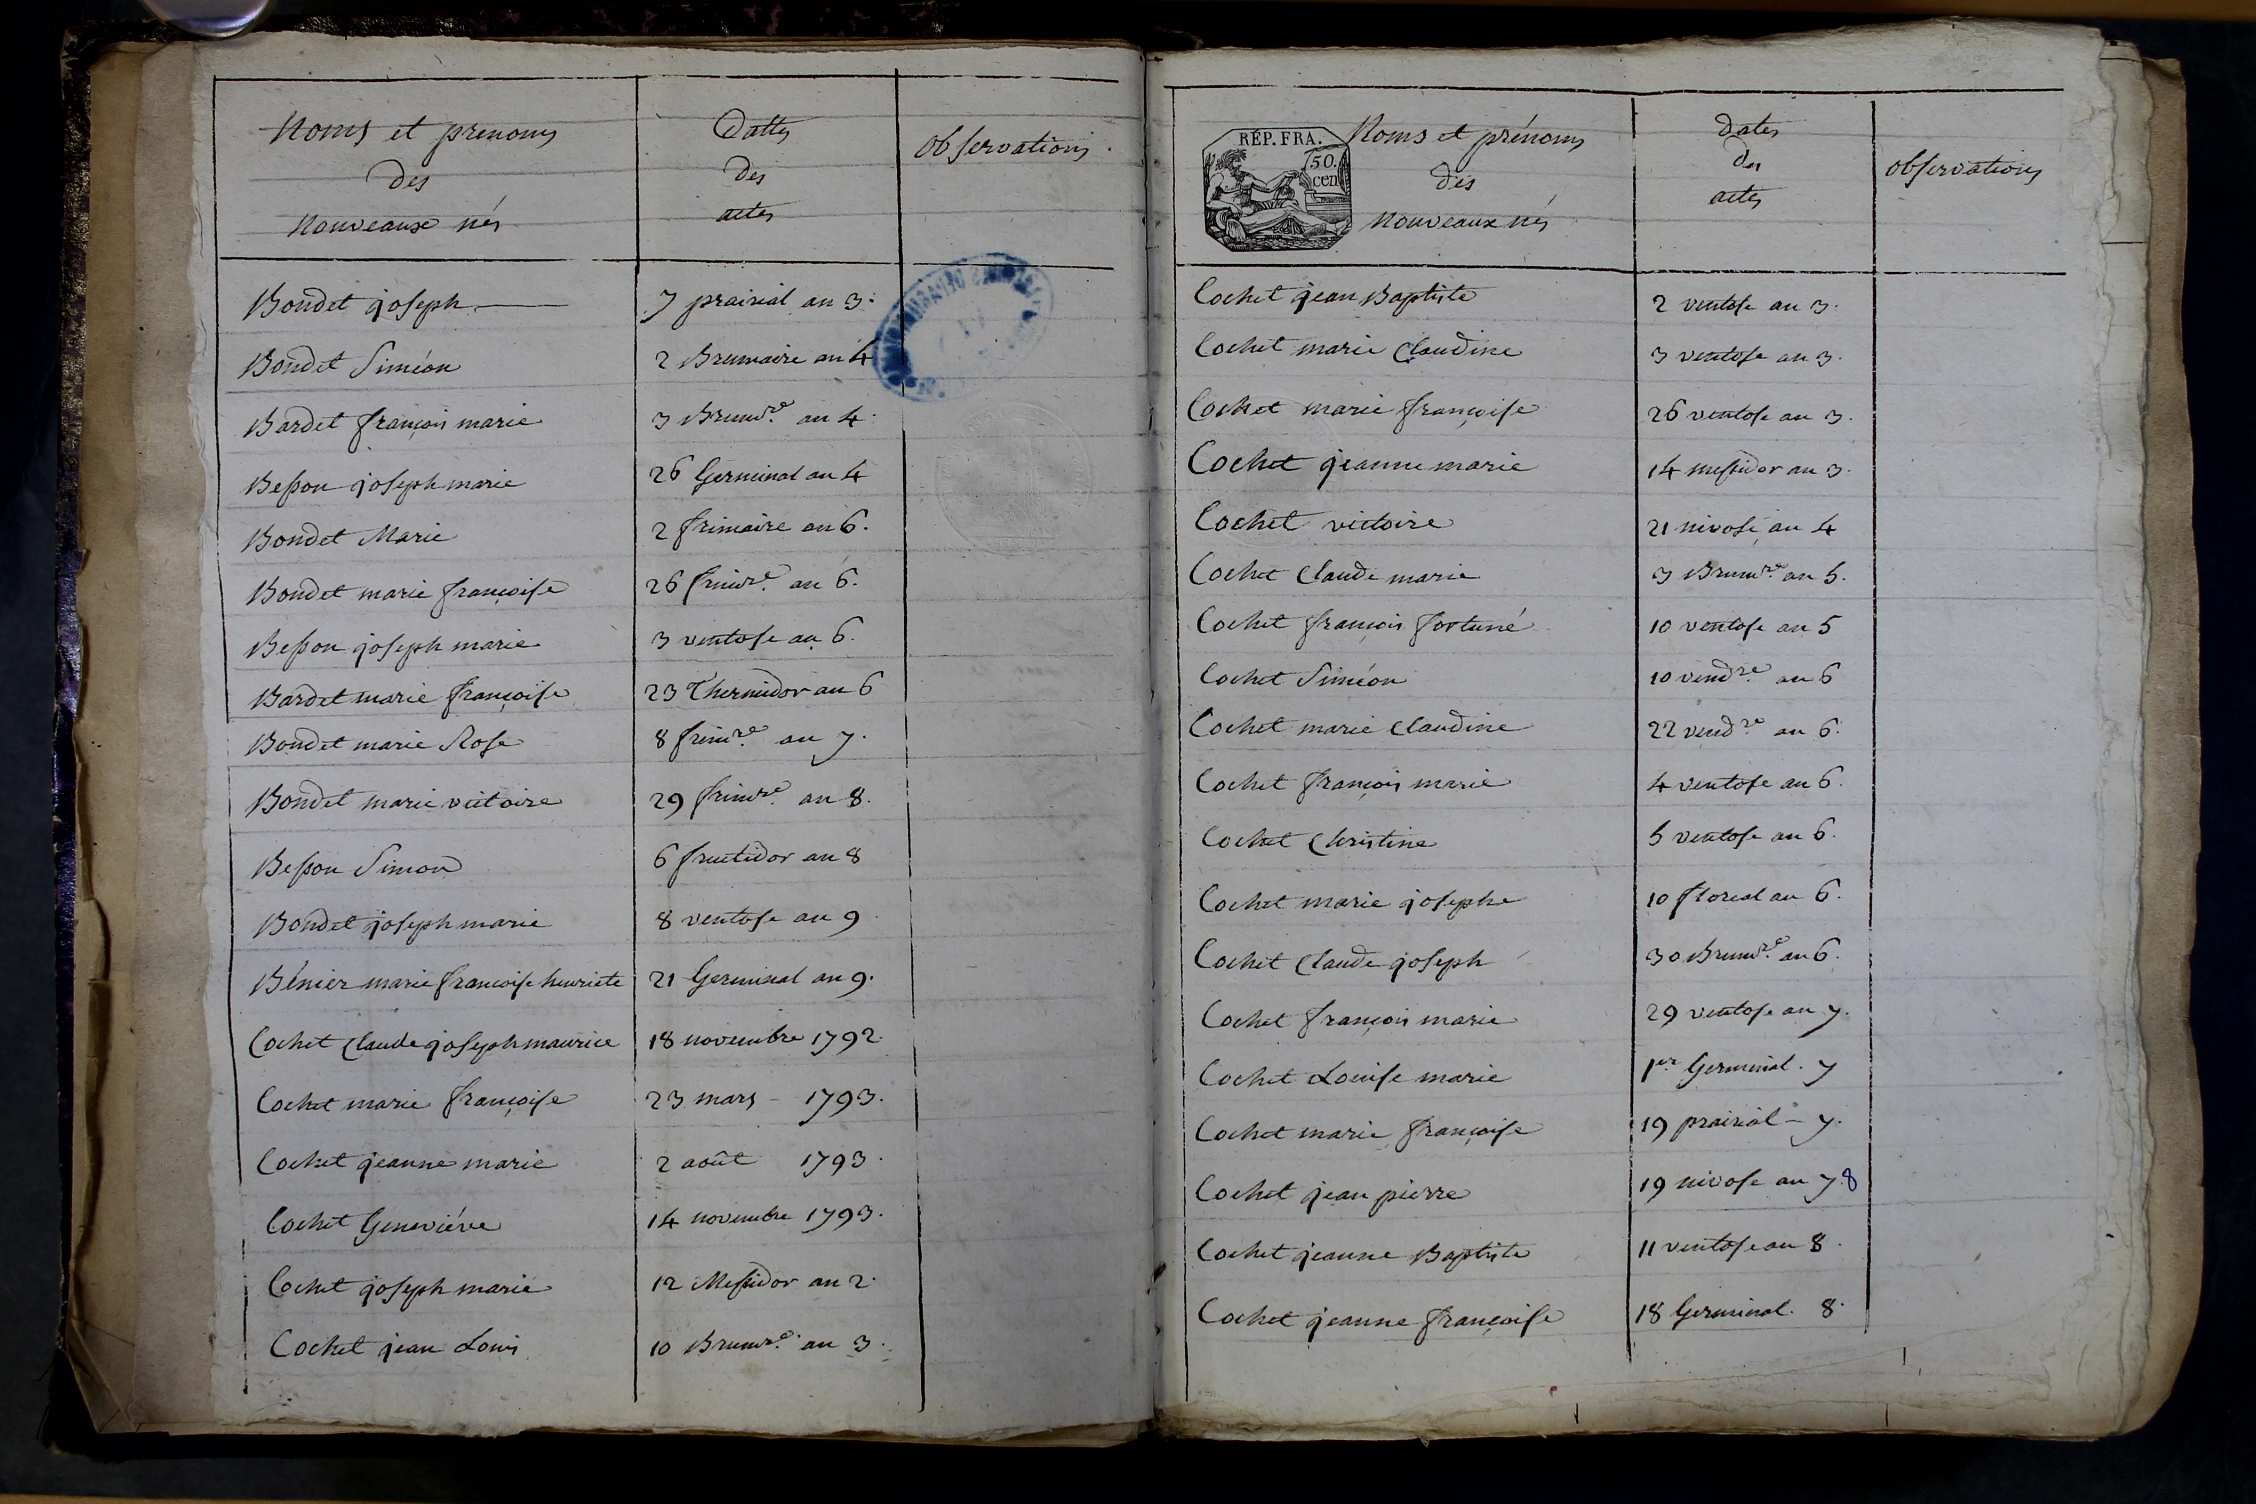 Noms et prenoms
des
Nouveaux nés
Dattes
des
actes
observations.
Bondet joseph
7 prairial an 3.
Bondet Siméon
2 Brumaire an 4
Bardet françois marie
3 Brumre. an 4.
Besson joseph marie
26 Germinal an 4
Bondet Marie
2 frimaire an 6.
Bondet marie françoise
26 frimre. an 6.
Besson joseph marie
3 ventose an 6.
Bardet marie françoise
23 Thermidor an 6
Bondet marie Rose
8 frimre. an 7.
Bondet marie victoire
29 frimre. an 8.
Besson Simon
6 fructidor an 8
Bondet joseph marie
8 ventose an 9
Bénier marie francoise henriete
21 Germinal an 9.
Cochet Claude joseph maurice
18 novembre 1792.
Cochet marie françoise
23 mars - 1793.
Cochet jeanne marie
2 août 1793.
Cochet Geneviéve
14 novembre 1793.
Cochet joseph marie
12 Messidor an 2.
Cochet jean Louis
10 Brumre. an 3.
RÉP. FRA.
50.
cen
Noms et prénoms
des
Nouveaux nés
dates
des
actes
observations
Cochet jean Baptiste
2 ventose an 3.
Cochet marie Claudine
3 ventose an 3.
Cochet marie françoise
26 ventose an 3.
Cochet jeanne marie
14 messidor an 3.
Cochet victoire
21 nivose an 4
Cochet Claude marie
3 Brumre. an 5.
Cochet françois fortuné
10 ventose an 5
Cochet Siméon
10 vendre. an 6
Cochet marie Claudine
22 vendre. an 6.
Cochet françois marie
4 ventose an 6.
Cochet Christine
5 ventose an 6.
Cochet marie josephe
10 floreal an 6.
Cochet Claude joseph
30 Brumre. an 6.
Cochet françois marie
29 ventose an 7.
Cochet Louise marie
1er Germinal. 7
Cochet marie françoise
19 prairial - 7.
Cochet jean pierre
19 nivose an 7.8
Cochet jeanne Baptiste
11 ventose an 8.
Cochet jeanne françoise
18 Germinal. 8.